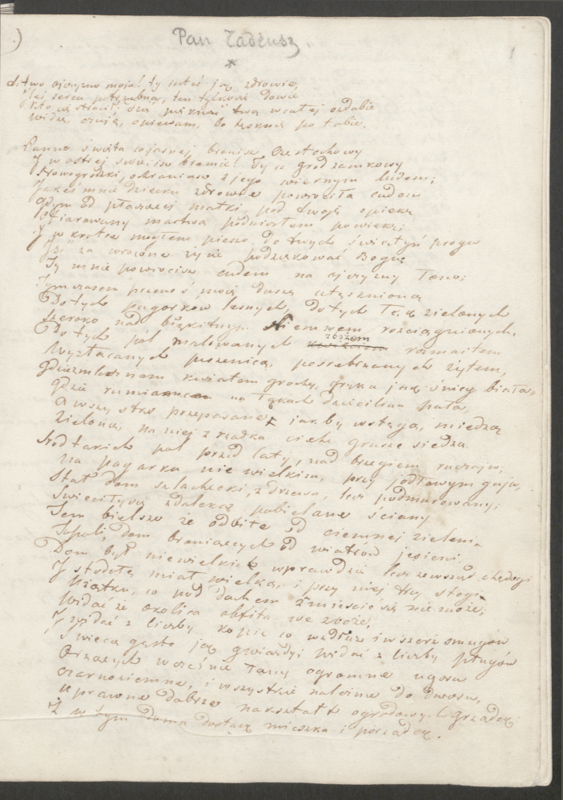 )
1
Pan Tadeusz.
*
Litwo ojczyzno moja! ty jesteś jak zdrowie
ten tylko się dowie
Kto cię stracił. Dziś piękność twą w całej ozdobie
Widzę, czuję, opiewam, bo tęsknię po tobie.
Panno święta co jasnej bronisz Częstochowy
I w ostrej świecisz bramie! Ty co gród zamkowy
Nowogródzki, ochraniasz z jego wiernym ludem;
Jakeś mnie dziecko zdrowiu powróciła cudem
Gdym od płaczącej matki, pod twoję opiekę
Ofiarowany martwą podniosłem powiekę;
I wkrótce mogłem pieszo, do twych świątyń progu
Iść za wrócone życie podziękować Bogu
Ty mnie powrócisz cudem na ojczyzny łono;
Tymczasem przenoś moją duszę utęsknioną
Do tych pagórków leśnych, do tych łąk zielonych
Szeroko nad błękitnym Niemnem rościągnionych.
Do tych pól malowanych zbożem rozmaitem
Wyzłacanych pszenicą, posrebrzanych żytem,
gryka jak śnieg biała,
Gdzie na łąkach dzięcielina pała,
A wszystko przepasane jakby wstęgą, miedzą
Zieloną, na niej z rzadka ciche grusze siedzą.
Śród takich pól przed laty, nad brzegiem ruczaju,
Na pagórku niewielkim, przy jodłowym gaju,
Stał dom szlachecki, z drzewa, lecz podmurowany;
Świeciły się zdaleka pobielane ściany
Tem bielsze że odbite od ciemnej zieleni
Topoli, dom broniących od wiatrów jesieni.
Dom był niewielki wprawdzie lecz zewsząd chędogi
I stodołę miał wielką, i przy niej trzy stogi
Użątku, co pod dachem zmieścić się nie może;
Widać że okolica obfita we zboże,
I widać z liczby kopic co wzdłuż i wszerz smugów
Świecą gęsto jak gwiazdy; widać z liczby pługów
Orzących wcześnie łany ogromne ugoru
Czarnoziemne, i wszystkie należne do dworu,
Uprawne dobrze nakształt ogrodowych grządek:
I w tym domu dostatek mieszka i porządek.